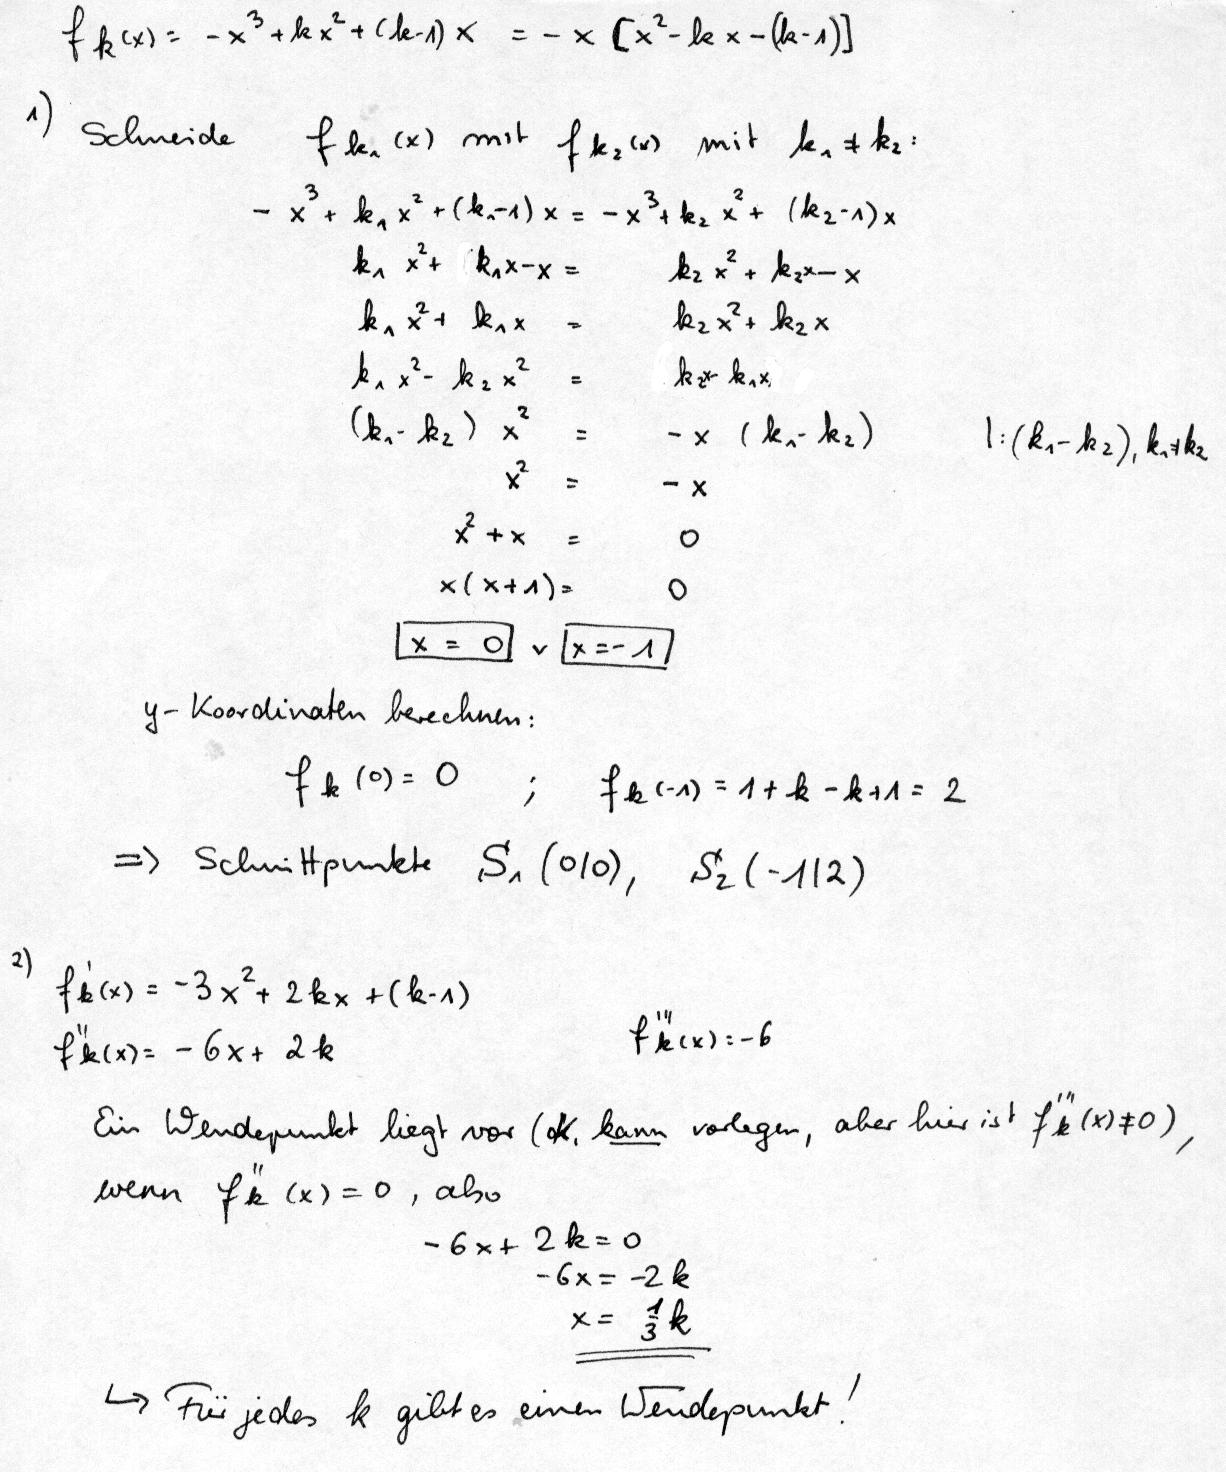 f_k(x) = -x³ + kx² + (k-1)x = -x [x² - kx - (k-1)]
1) Schneide f_k₁(x) mit f_k₂(x) mit k₁ ≠ k₂:
-x³ + k₁x² + (k₁-1)x = -x³ + k₂x² + (k₂-1)x
k₁x² + k₁x - x = k₂x² + k₂x - x
k₁x² + k₁x = k₂x² + k₂x
k₁x² - k₂x² = k₂x - k₁x
(k₁-k₂) x² = -x (k₁-k₂) |:(k₁-k₂), k₁≠k₂
x² = -x
x² + x = 0
x(x+1) = 0
x = 0 v x = -1
y-Koordinaten berechnen:
f_k(0) = 0 ; f_k(-1) = 1 + k - k + 1 = 2
=> Schnittpunkte S₁(0|0), S₂(-1|2)
2) f'_k(x) = -3x² + 2kx + (k-1)
f''_k(x) = -6x + 2k f'''_k(x) = -6
Ein Wendepunkt liegt vor (ok, kann vorliegen, aber hier ist f'''_k(x) ≠ 0),
wenn f''_k(x) = 0, also
-6x + 2k = 0
-6x = -2k
x = 1/3 k
↳ Für jedes k gibt es einen Wendepunkt!